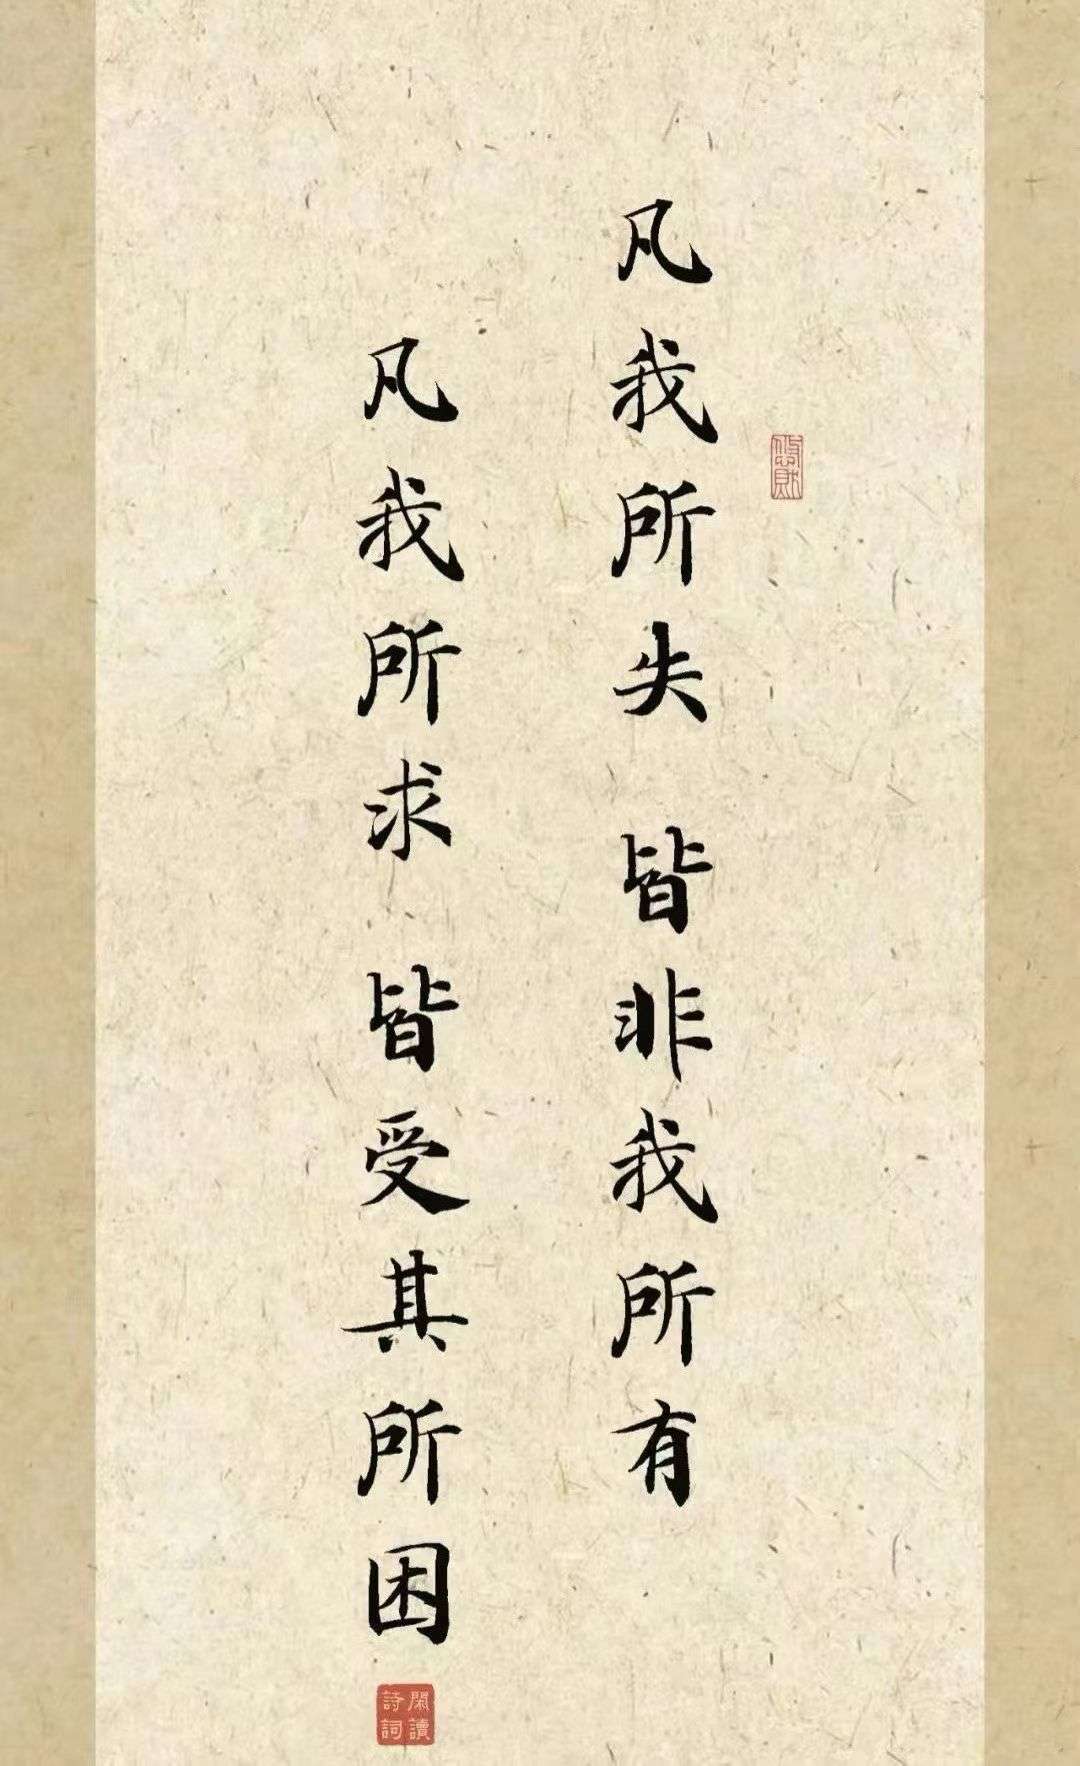 凡我所失 皆非我所有
凡我所求 皆受其所困
閑讀
詩詞